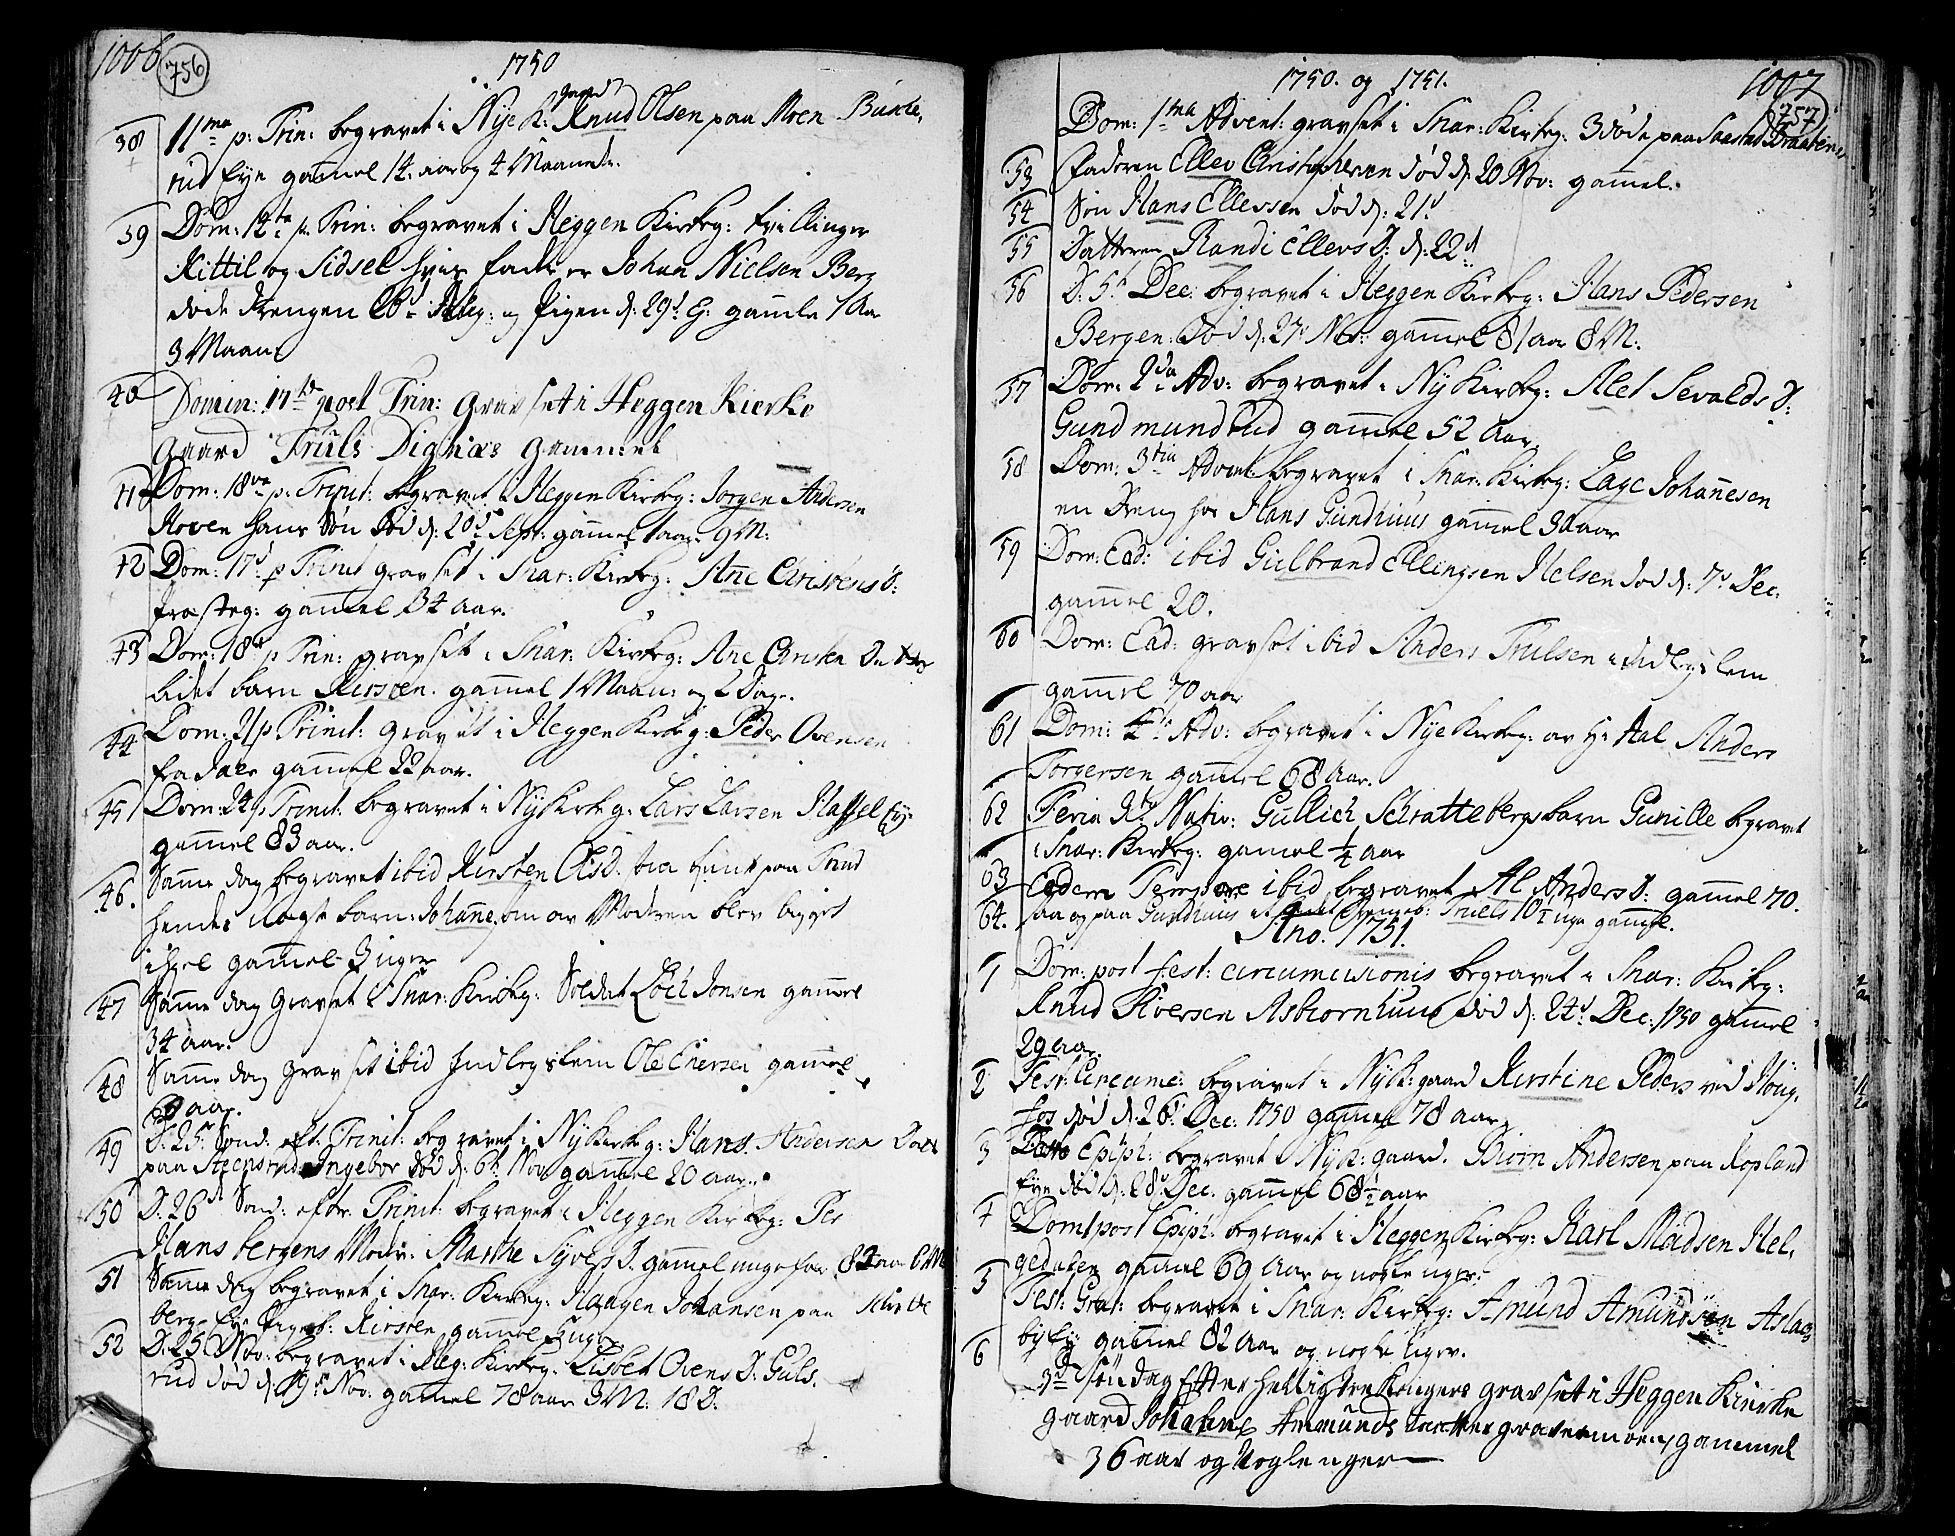 1006
756
1750
gaard
38 11ma p: Trin: begravet i Nye K: Knud Olsen paa Moen
rud Eye gamel 14. aar og 4 Maaneder.
39 Dom: 12ta p. Trin: begravet i Heggen Kirkeg: tvillinger
Kittil og Sidsel hvis fader er Johan Nielsen Berg
døde Drengen og Pigen d: 29d gamle 1 Aar
3 Maan:
40 Domin: 17de post Trin: gravset i Heggen Kierke
gaard Truls Dignæs gammel
41 Dom: 18va p: Trinit: begravet i Heggen Kirkeg: Jørgen Andersen
Moren hans Søn død d: 20d Sept: gammel 1 aar 9 M:
42 Dom: 17d: p Trinit gravset i Snar: Kirkeg: Ane Christensd:
Præsteg: gammel 34 aar.
43 Dom: 18d p Trin: gravset i Snar: Kirkeg: Ane
lidet barn Kirsten. gammel 1 Maan: og 2 Dage.
44 Dom: 21 p Trinit: gravset i Heggen Kirkeg: Peder Ovensen
fra Dale gammel 22 aar.
45 Dom: 24 p Trinit: begravet i Nykirkeg: Lars Larsen Hassel Ey:
gammel 83 aar.
46. Samme dag begravet ibid Kirsten Olsd. paa
hendes barn: Johanne, som av Moderen blev ligget
ihiel gammel 3 uger
47 Samme dag gravset i Snar: Kirkeg: Soldat Jonsen gammel
34 aar.
48 Samme dag gravset ibid Indlegslem Ole Enersen gammel
aar.
49 D. 25d Sond: eft: Trinit: begravet i Nykirkeg: Hans Andersen Dat
paa Steensrud Ingebor død d: 6d Nov gammel 20 aar.
50 D. 26d Sond: efter Trinit: begravet i Heggen Kirkeg: Per
Hansbergens Moder: Marthe Syvers D. gammel ungefer 82 aar 6 M
51 Samme dag begravet i Snar: Kirkeg: Haagen Johansen paa
bergs Eye Pigeb: Kirsten gammel 3 uger
52 D. 25 Nov: begravet i Heg: Kirkeg: Lisbet Ovens D. Guls,
rud død d: 19d Nov: gammel 78 aar 3 M. 18 D.
1750. og 1751.
1007
757
Dom: 1ma Advent: gravset i Snar: Kirkeg: 3 døde paa Saastad
53 Faderen Ellev Christophersen død d: 20 Nov: gammel.
54 Søn Hans Ellevsen død d: 21d
55 Datteren Randi Ellevs D: d: 22d
56 D. 5d Dec: begravet i Heggen Kirkeg: Hans Pedersen
Bergen: død d: 27d Nov: gammel 81 aar 8 M.
57 Dom: 2da Adv: begravet i Ny Kirkeg: Alet Sevalds D:
Gundmundrud gammel 52 aar.
58 Dom: 3tia Advent begravet i Snar: Kirkeg: Lage Johannesen
en Dreng hos Hans Gundhuus gammel aar
59 Dom: Ead: ibid Gulbrand Ellingsen Helsen død d: 7d Dec.
gammel 20.
60 Dom: Ead: gravset ibid Anders Trulsen indlegslem
gammel 70 aar
61 Dom: 4de Adv: begravet i Nye Kirkeg: av Anders
Torgersen gammel 68 aar.
62 Feria Nativ: Gullich Schrattebergs barn Gunille begravet
i Snar: Kirkeg: gamel 1/4 aar
63 Eadem Tempore ibid begravet Al Anders D: gammel 70.
64. saa og paa Gundhuus et Truels 10 1/2 uge gammel.
Ano. 1751.
1 Dom: post fest: circumcisionis begravet i Snar: Kirkeg:
Knud Iversen Asbiornhuus død d: 24d Dec: 1750 gammel
29 aar
2 Fest: Circumc: begravet i Nyk: gaard Kirstine Peders ved Høug,
fos død d: 26d Dec: 1750 gammel 78 aar
3 Festo Epiph: begravet i Nyk: gaard. Biørn Andersen paa Kopland
Eye død d: 28d Dec: gammel 68 1/2 aar
4 Dom 1 post Epiph: begravet i Heggen Kirkeg: Karl Madsen Hel,
gedalen gammel 69 aar og nogle uger.
5 Fest: begravet i Snar: Kirkeg: Amund Amundsøn Aslac
by Ey gammel 82 aar og nogle uger.
6 3d Søndag Efter hellig tre Kongers gravset i Heggen Kierke
gaard Johane Ammunds Datter Gravermoen gammel
36 aar og Nogle uger